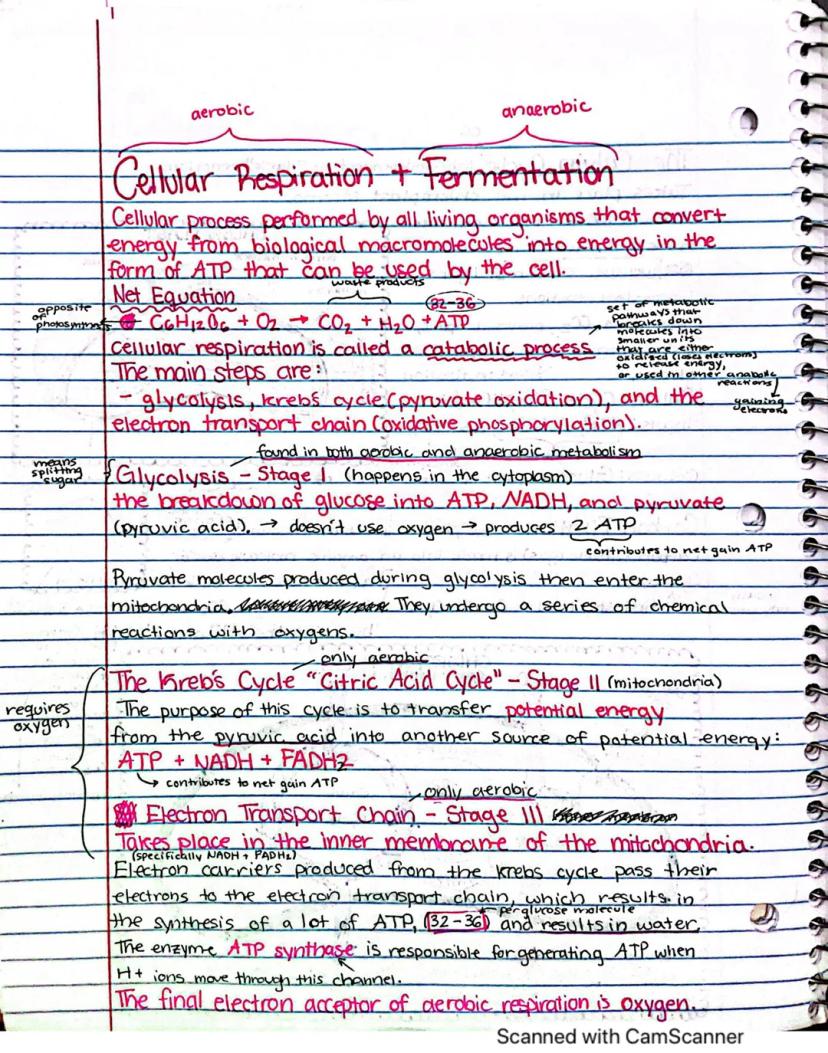 aerobic
anaerobic
Cellular Respiration + Fermentation
Cellular process performed by all living organisms that convert
energy from biological macromolecules into energy in the
form of ATP that can be used by the cell.
waste products
Net Equation
32-36
opposite
of
photosynthesis
C6H12O6 + O2 → CO2 + H2O + ATP
set of metabolic
pathways that
breaks down
molecules into
smaller units
that are either
oxidized (loses electrons)
to release energy,
or used in other anabolic
reactions
gaining
electrons
Cellular respiration is called a catabolic process
The main steps are:
- glycolysis, krebs cycle (pyruvate oxidation), and the
electron transport chain (oxidative phosphorylation).
found in both aerobic and anaerobic metabolism
means
splitting
sugar
Glycolysis - Stage I (happens in the cytoplasm)
the breakdown of glucose into ATP, NADH, and pyruvate
(pyruvic acid). → doesn't use oxygen → produces 2 ATP
contributes to net gain ATP
Pyruvate molecules produced during glycolysis then enter the
mitochondria. They undergo a series of chemical
reactions with oxygens.
only aerobic
The Kreb's Cycle "Citric Acid Cycle" - Stage II (mitochondria)
requires
oxygen
The purpose of this cycle is to transfer potential energy
from the pyruvic acid into another source of potential energy:
ATP + NADH + FADH2
→ contributes to net gain ATP
only aerobic
Electron Transport Chain - Stage III
Takes place in the inner membrane of the mitochondria.
(specifically NADH + FADH2)
Electron carriers produced from the krebs cycle pass their
electrons to the electron transport chain, which results in
per glucose molecule
the synthesis of a lot of ATP, (32-36) and results in water.
The enzyme ATP synthase is responsible for generating ATP when
H+ ions move through this channel.
The final electron acceptor of aerobic respiration is oxygen.
Scanned with CamScanner